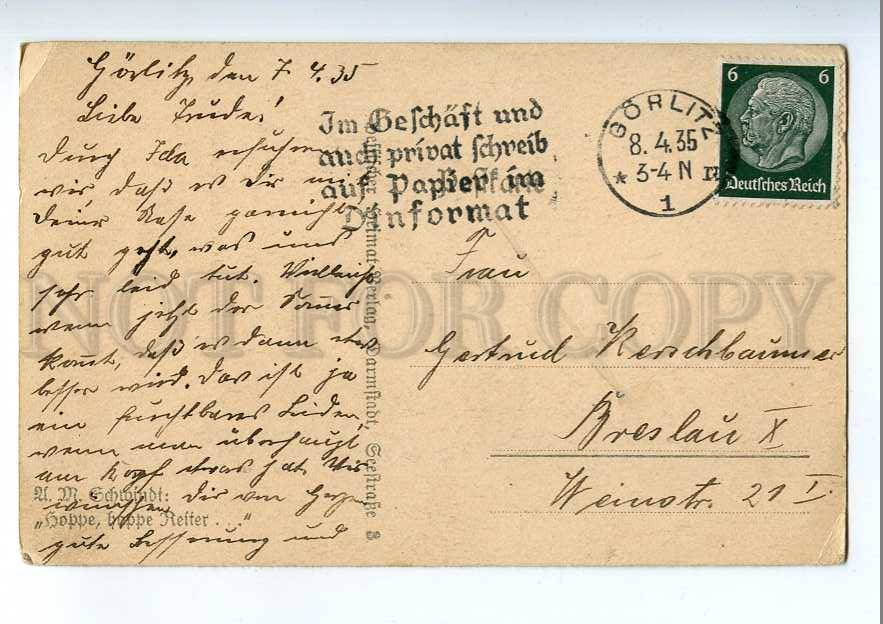 Görlitz, den 7.4.35
Liebe Trude!
Durch Ida erfuhren
wir, daß es Dir mit
Deiner Nase garnicht
gut geht, was uns
sehr leid tut. Vielleicht
wenn jetzt der Sommer
kommt, daß es dann etwas
besser wird. Das ist ja
ein furchtbares Leiden,
wenn man überhaupt
am Kopf etwas hat. Wir
wünschen Dir von Herzen
gute Besserung und
A. M. Schwindt:
„Hoppe, hoppe Reiter . . .“
Heimat-Verlag, Darmstadt, Seestraße 3
Im Geschäft und
auch privat schreib
auf Papier im
Dinformat
GÖRLITZ
8.4.35
* 3-4 N
1
6 6
Deutsches Reich
Frau
Gertrud Kerschbaumer
Breslau X
Weinstr. 21 I.
NOT FOR COPY